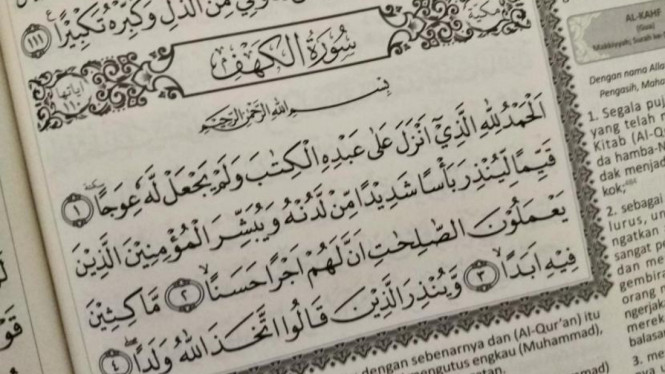 وَكَبِّرْهُ تَكْبِيْرًا ࣖ ١١١
مكية
سُوْرَةُ الْكَهْفِ
اٰياتها ١١٠
بِسْمِ اللّٰهِ الرَّحْمٰنِ الرَّحِيْمِ
اَلْحَمْدُ لِلّٰهِ الَّذِيْٓ اَنْزَلَ عَلٰى عَبْدِهِ الْكِتٰبَ وَلَمْ يَجْعَلْ لَّهٗ عِوَجًا ۜ ١
قَيِّمًا لِّيُنْذِرَ بَأْسًا شَدِيْدًا مِّنْ لَّدُنْهُ وَيُبَشِّرَ الْمُؤْمِنِيْنَ الَّذِيْنَ
يَعْمَلُوْنَ الصّٰلِحٰتِ اَنَّ لَهُمْ اَجْرًا حَسَنًا ۙ ٢ مَّاكِثِيْنَ
فِيْهِ اَبَدًا ۙ ٣ وَّيُنْذِرَ الَّذِيْنَ قَالُوا اتَّخَذَ اللّٰهُ وَلَدًا ٤
AL-KAHF
(Gua)
Makkiyyah; Surah ke
Dengan nama Alla
Pengasih, Maha
1. Segala puj
yang telah
Kitab (Al-Q
da hamba-N
dak menjad
kok;
2. sebagai
lurus, un
ngatkan
sangat p
dan me
gembir
orang
ngerjak
merek
balasa
3. me
dengan sebenarnya dan (Al-Qur'an) itu
mengutus engkau (Muhammad),